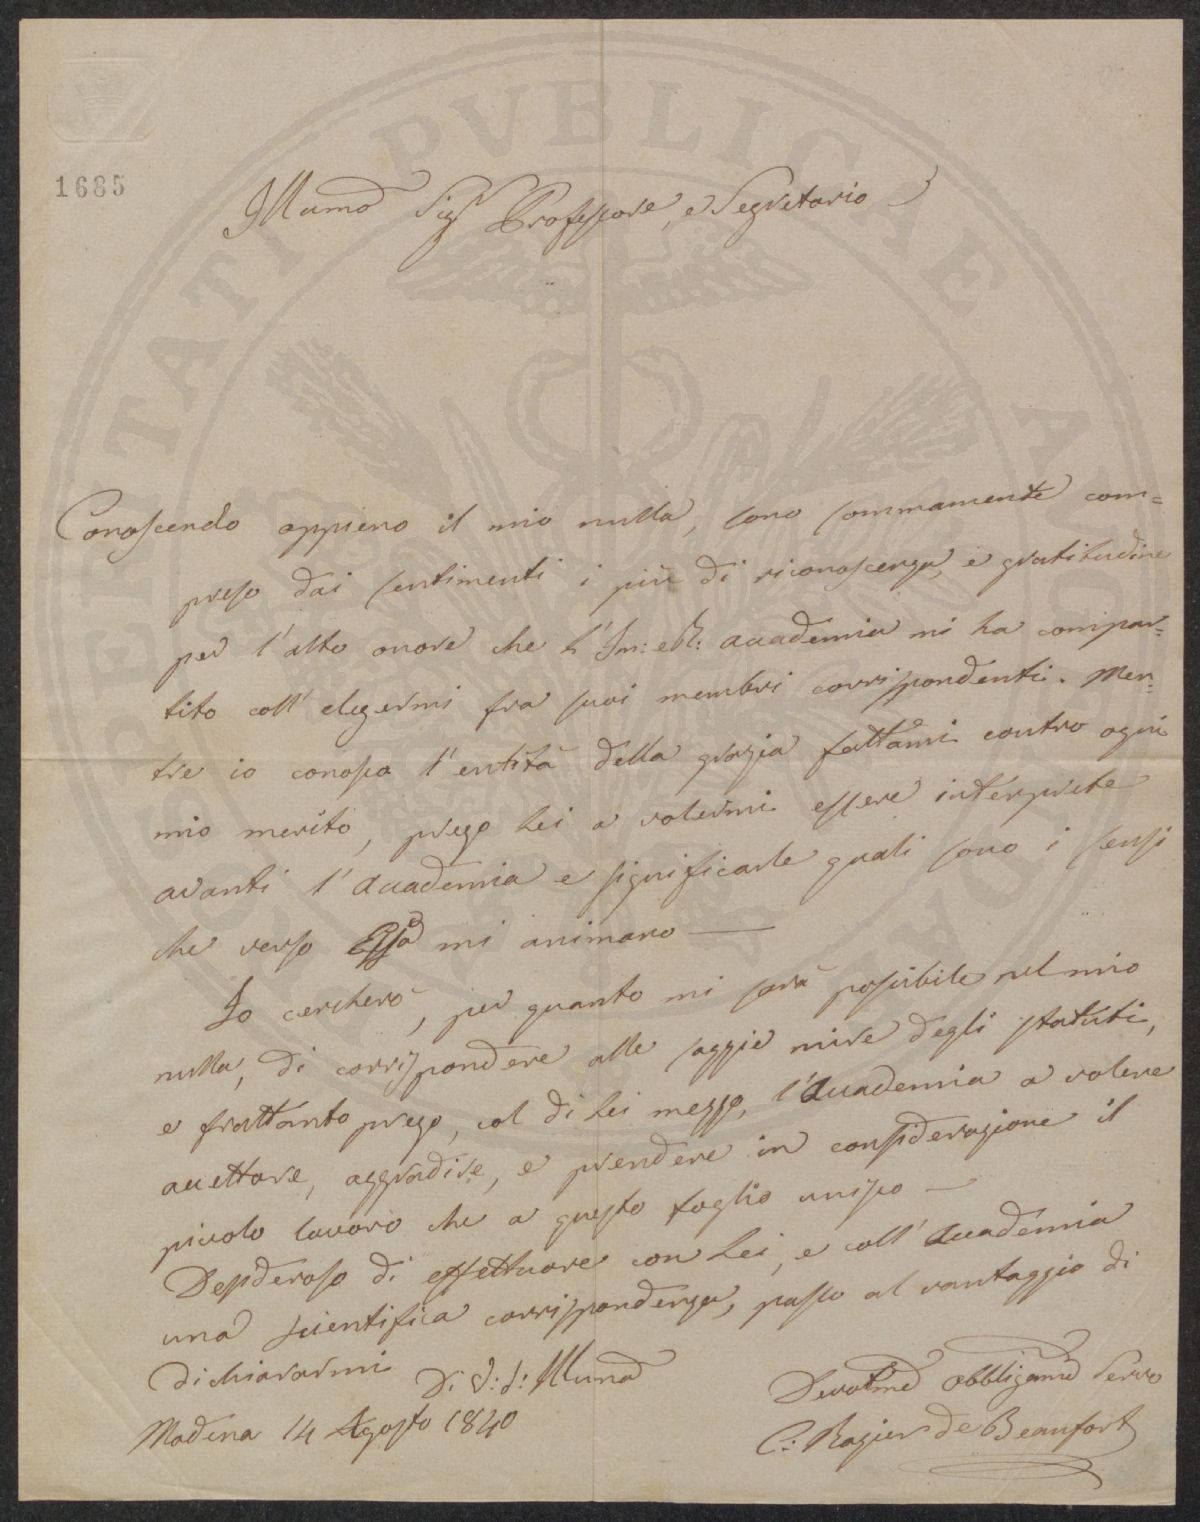 1685
Illumo Sigr Professore, e Segretario
Conoscendo appieno il mio nulla, sono sommamente com=
preso dai sentimenti i più di riconoscenza, e gratitudine
per l'alto onore che l'Im: e R: Accademia mi ha compar=
tito coll' elegermi fra suoi membri corrispondenti. Men=
tre io conosco l'entità della grazia fattami contro ogni
mio merito, prego Lei a volermi essere interprete
avanti l'Accademia e significarle quali sono i sensi
che verso Essa mi animano —
Io cercherò, per quanto mi sarà possibile nel mio
nulla, di corrispondere alle saggie mire degli statuti,
e frattanto prego, col di Lei mezzo, l'Accademia a volere
accettare, aggradire, e prendere in considerazione il
picolo lavoro che a questo foglio unisco —
Desideroso di effettuare con Lei, e coll' Accademia
una scientifica corrispondenza, passo al vantaggio di
dichiararmi Di V: S: Illuma
Devotmo obbligamo Servo
Modena 14 Agosto 1840
C: Ragier de Beaufort